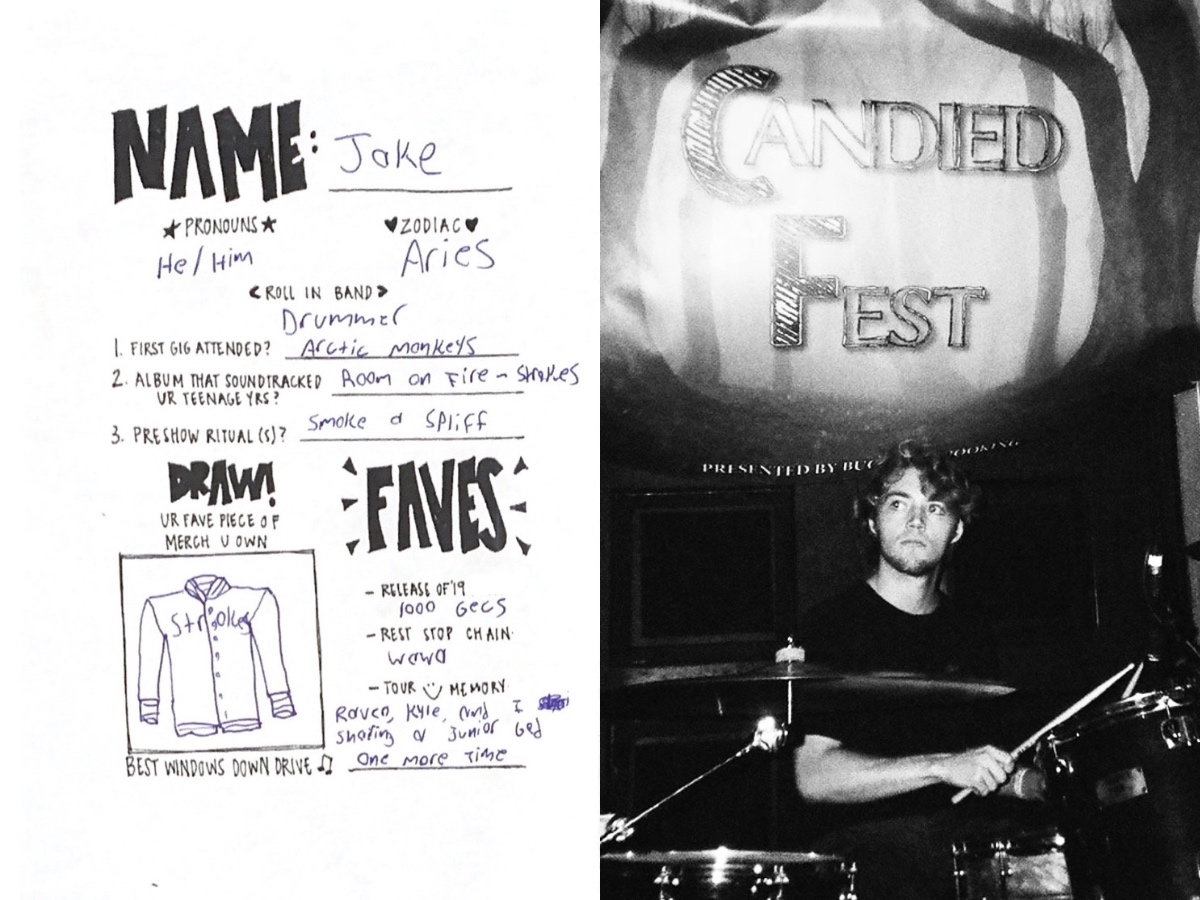 NAME: Jake
★PRONOUNS★
He/Him
♥ZODIAC♥
Aries
<ROLL IN BAND>
Drummer
1. FIRST GIG ATTENDED? Arctic Monkeys
2. ALBUM THAT SOUNDTRACKED UR TEENAGE YRS? Room on Fire - Strokes
3. PRESHOW RITUAL(S)? Smoke a Spliff
DRAW!
UR FAVE PIECE OF
MERCH U OWN
Strokes
FAVES
- RELEASE OF '19
1000 Gecs
- REST STOP CHAIN
wawa
- TOUR MEMORY
Raven, Kyle, and I
sharing a Junior bed
BEST WINDOWS DOWN DRIVE ♫ One more Time
CANDIED
FEST
PRESENTED BY